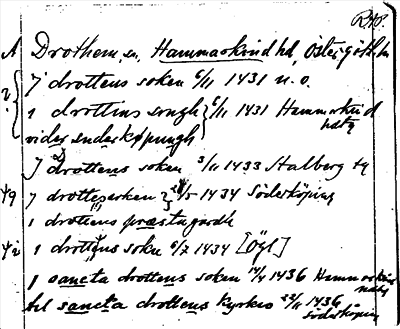 A Drothem, sn, Hammarkind hd, Östergötl. ln
J drottens soken 6/11 1431 n. o.
i drottins songh } 6/11 1431 Hammarkind
vider suderkøpungh
J drottens soken 3/11 1433 Stalberg
J drottes 1434 Söderköping
i drottens præstagardh
i drottens soken 6/7 1434 [Ögl]
J sancta drottens soken 14/4 1436 Hammarkind
til sancta drottens kyrkio 22/11 1436
Söderköping